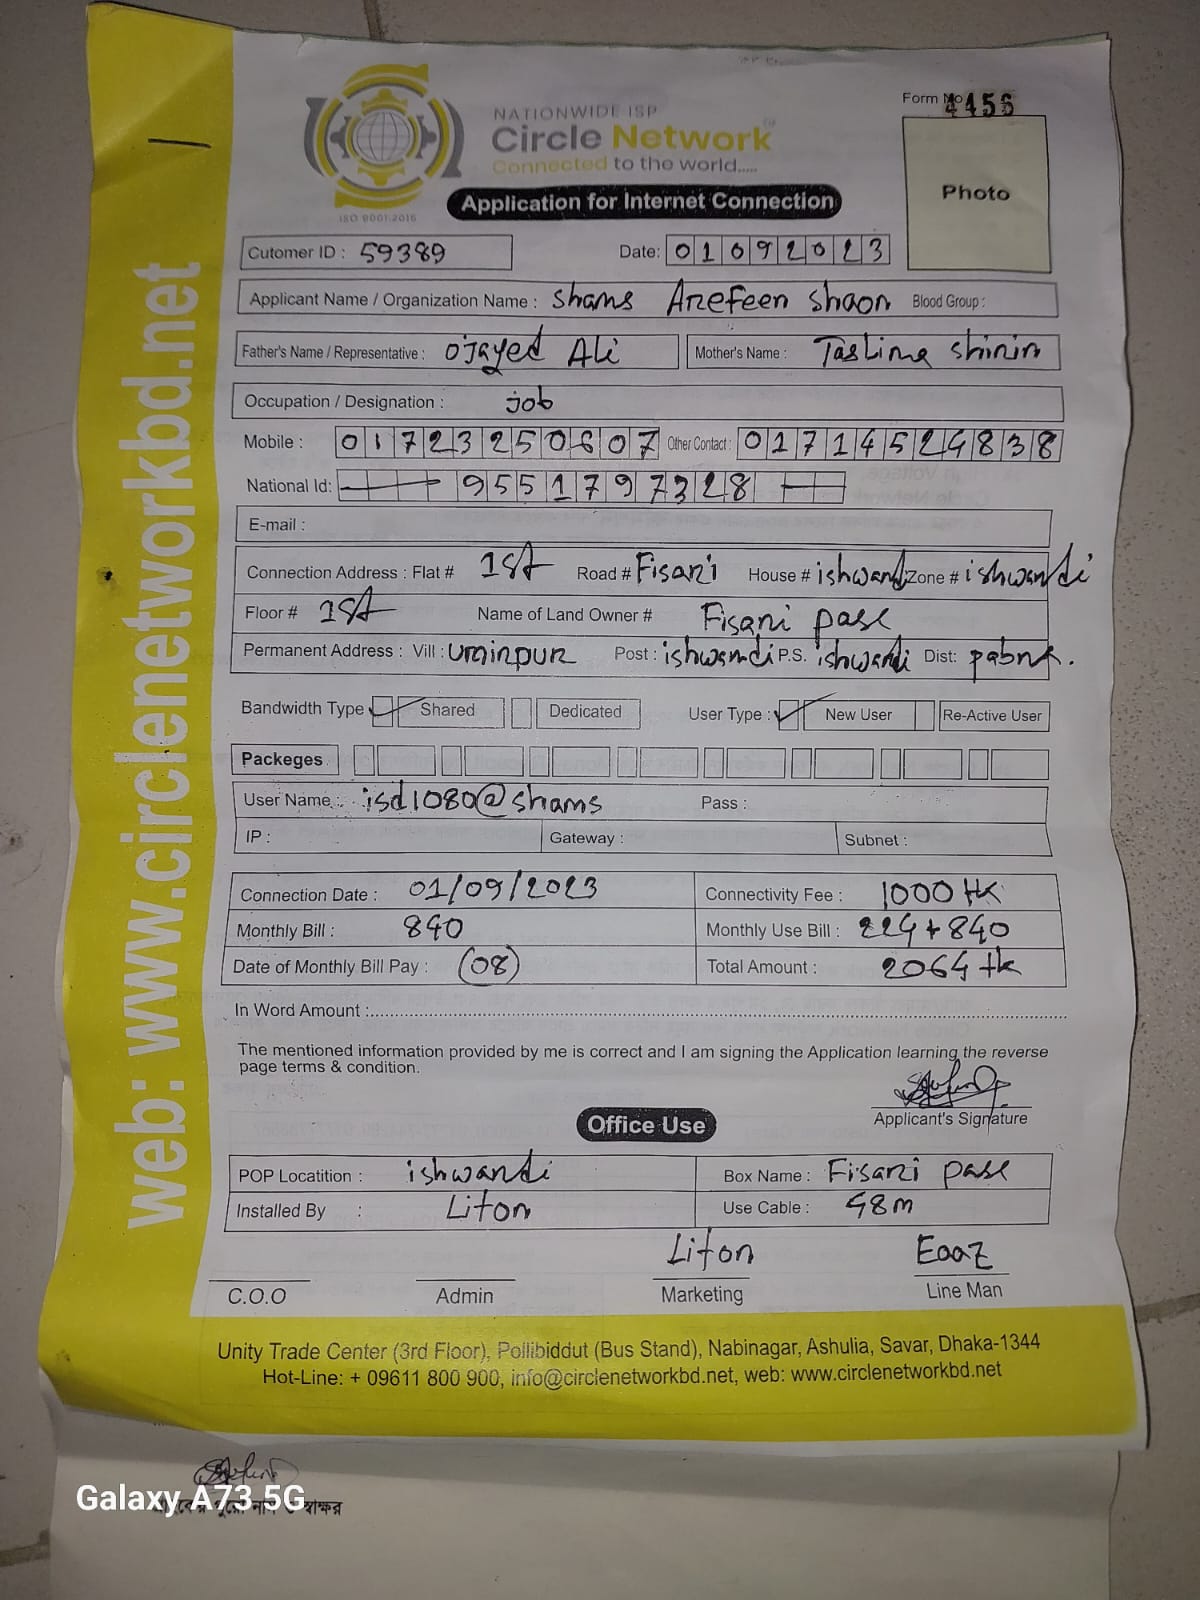 NATIONWIDE ISP
Circle Network
Connected to the world.....
ISO 9001:2015
Form No 4456
Photo
Application for Internet Connection
web: www.circlenetworkbd.net
Cutomer ID : 59389 Date: 01092023
Applicant Name / Organization Name : Shams Arefeen Shaon Blood Group :
Father's Name / Representative : Ojayed Ali Mother's Name : Taslima Shirin
Occupation / Designation : job
Mobile : 01723250607 Other Contact : 01714524838
National Id: 9551797328
E-mail :
Connection Address : Flat # 1st Road # Fisari House # ishwardi Zone # ishwardi
Floor # 1st Name of Land Owner # Fisari para
Permanent Address : Vill : Umirpur Post : ishwardi P.S. ishwardi Dist: pabna.
Bandwidth Type Shared Dedicated User Type : New User Re-Active User
Packeges
User Name : isd1080@shams Pass :
IP : Gateway : Subnet :
Connection Date : 01/09/2023 Connectivity Fee : 1000 tk
Monthly Bill : 840 Monthly Use Bill : 224+840
Date of Monthly Bill Pay : (08) Total Amount : 2064 tk
In Word Amount :
The mentioned information provided by me is correct and I am signing the Application learning the reverse
page terms & condition.
Applicant's Signature
Office Use
POP Locatition : ishwardi Box Name : Fisari para
Installed By : Liton Use Cable : 48m
Liton Eaaz
C.O.O Admin Marketing Line Man
Unity Trade Center (3rd Floor), Pollibiddut (Bus Stand), Nabinagar, Ashulia, Savar, Dhaka-1344
Hot-Line: + 09611 800 900, info@circlenetworkbd.net, web: www.circlenetworkbd.net
Galaxy A73 5G